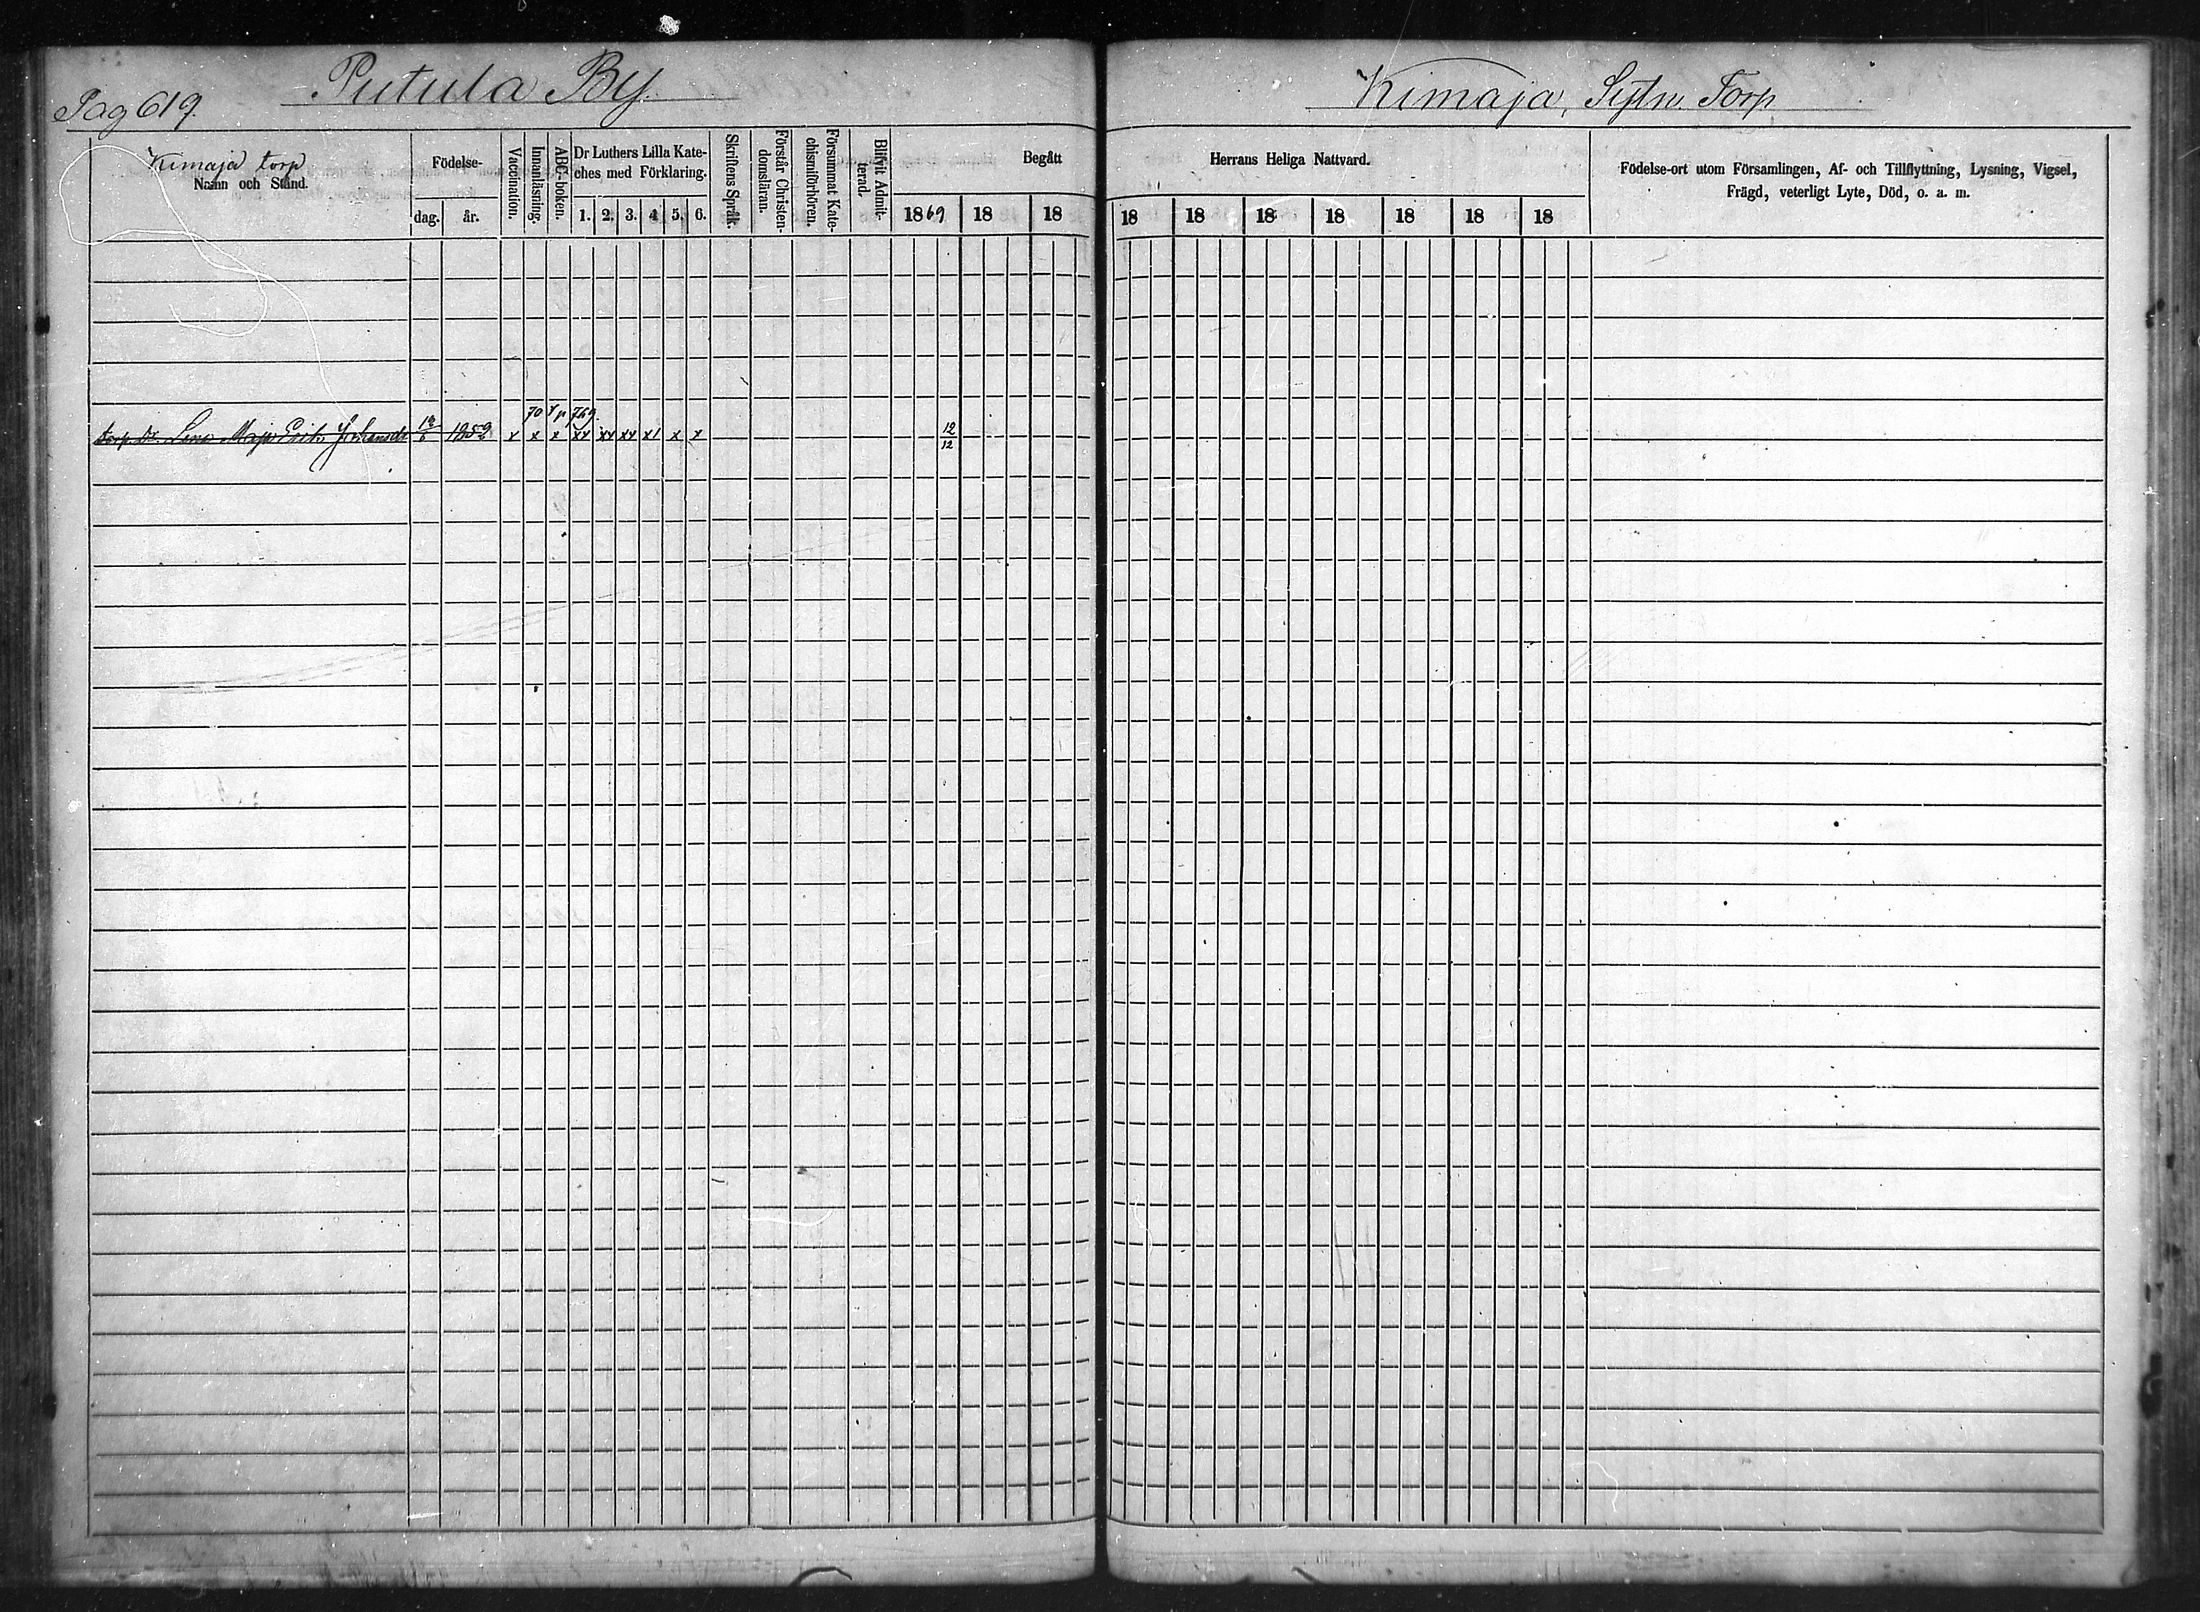 Pag 619.
Putula By.
Kimaja, Torp
Kimaja torp
Namn och Stånd.
Födelse-
dag. år.
Vaccination.
Innanläsning.
ABC-boken.
Dr Luthers Lilla Kate-
ches med Förklaring.
1. 2. 3. 4. 5. 6.
Skriftens Språk.
Förstår Christen-
domsläran.
Försummat Kate-
chismiförhören.
Blifvit Admit-
terad.
Begått Herrans Heliga Nattvard.
1869 18 18 18 18 18 18 18 18 18
Födelse-ort utom Församlingen, Af- och Tillflyttning, Lysning, Vigsel,
Frägd, veterligt Lyte, Död, o. a. m.
70
Torp. Dr. Lena Maja Erik 1852 x x x xx xx xx x1 x x 12/12